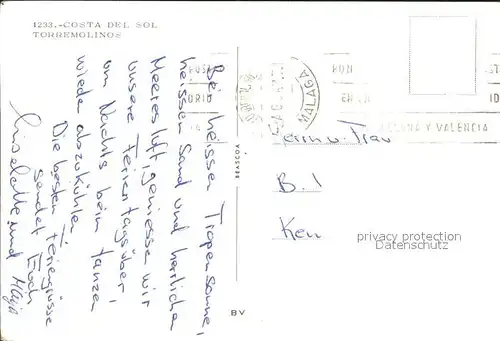 1233.-COSTA DEL SOL
TORREMOLINOS
Bei heisser Tropensonne,
heissen Sand und herrlicher
Meeresluft, geniesse wir
unsere Ferientagsüber,
um Nachts beim tanzen
wieder abzukühlen
Die besten Feriengrüsse
sendet Euch
Liselotte und
BEASCOA
BV
MALAGA
Y VALENCIA
Herrn u. Frau
B. I
Ken
privacy protection
Datenschutz